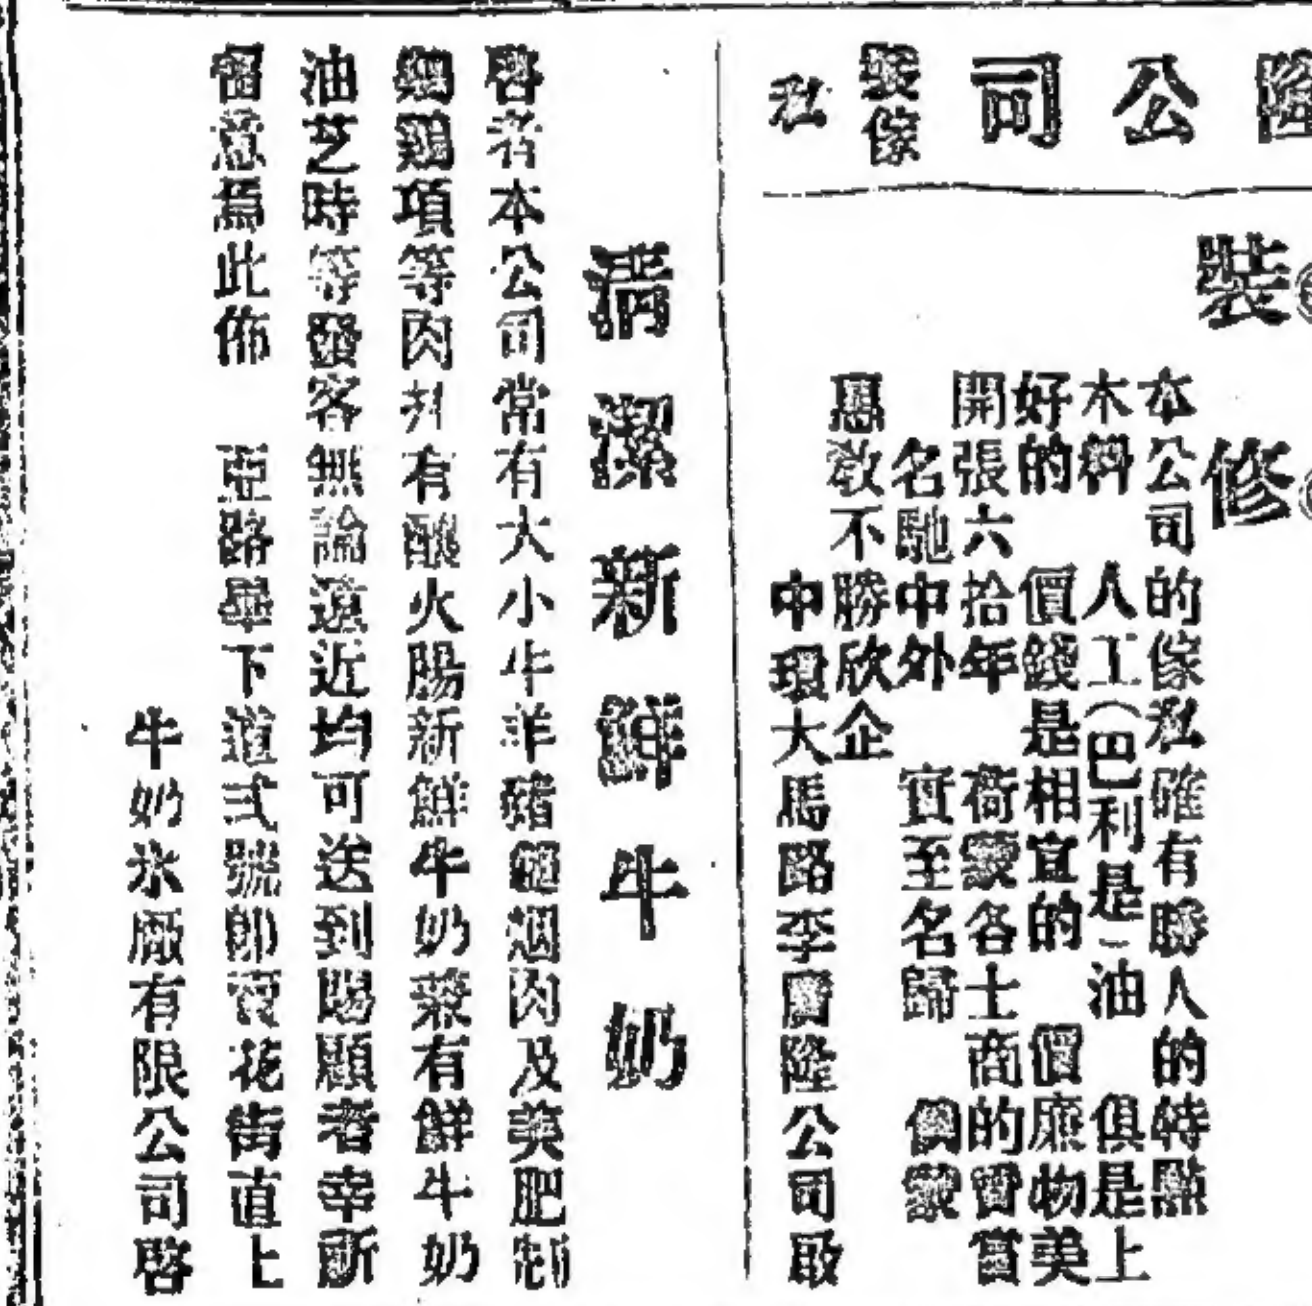 隆公司
裝傢
私
裝
修
本公司的傢私確有勝人的特點
木料 人工(巴利是)油 俱是上
好的 價錢是相宜的 價廉物美
開張六拾年 荷蒙各士商的賞
名馳中外 實至名歸 倘蒙
惠敎不勝欣企
中環大馬路李廣隆公司啟
清潔新鮮牛奶
啓者本公司常有大小牛羊猪烟肉及美肥
項等肉并有火腸新鮮牛奶兼有鮮牛奶
油芝時等發客無論遠近均可送到賜顧者幸
留意焉此佈 亞路畢下道弍號卽花街直上
牛奶氷廠有限公司啓